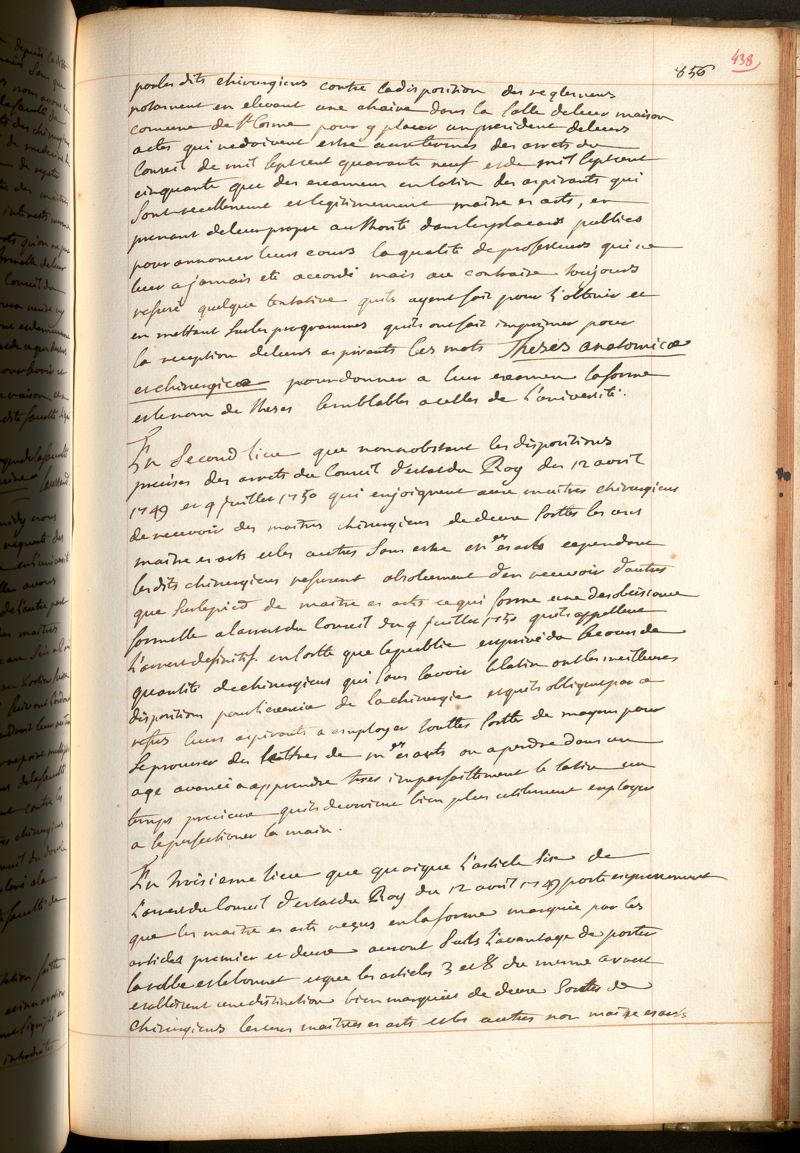 656
438
par les dits chirurgiens contre la disposition des reglemens
notament en elevant une chaire dans la salle de leur maison
comune de St Cosme pour y placer un president de leurs
actes qui ne doivent estre aux termes des arrets du
Conseil de mil sept cent quarante neuf et de mil sept cent
cinquante que des examens en latin des aspirants qui
sont reellement et legitimement maitre es arts, en
prenant de leur propre authorité dans les placards publics
pour annoncer leurs cours la qualité de professeurs qui ne
leur a jamais eté accordé mais au contraire toujours
refusé quelque tentative quils ayent fait pour l'obtenir et
en mettant sur les programmes quils ont fait imprimer pour
la reception de leurs aspirants les mots Theses anatomicæ
et chirurgicæ pour donner a leur examen la forme
et le nom de theses semblables a celles de l'université.
En second lieu que nonnobstant les dispositions
precises des arrets du Conseil d'estat du Roy des 12 avril
1749 et 4 juillet 1750 qui enjoignent aux maitres chirurgiens
de recevoir des maitres chirurgiens de deux sorttes les uns
maitre es arts et les autres sans estre mres es arts cependant
les dits chirurgiens refusent absolument d'en recevoir d'autres
que sur le pied de maitre es arts ce qui forme une desobeissance
formelle a l'arrest du Conseil du 4 juillet 1750 quils appellent
l'arrest definitif. en sortte que le public est privé du secours de
quantité de chirurgiens qui sans savoir le latin ont les meilleures
dispositions pour la science de la chirurgie et quils obligent par ce
refus leurs aspirants a employer touttes sortte de moyens pour
se procurer des lettres de mres es arts ou a perdre dans un
age avancé a apprendre tres imparfaittement le latin un
temps precieux quils devroient bien plus utilement employer
a se perfectioner la main.
En troisieme lieu que quoique l'article six de
l'arrest du Conseil d'estat du Roy du 12 avril 1749 porte expressement
que les maitre es arts reçus en la forme marquée par les
articles premier et deux auront seuls l'avantage de porter
la robbe et le bonnet et que les articles 3 et 8 du meme arrest
etablissent une distinction bien marquée de deux sorttes de
chirurgiens les uns maitres es arts et les autres non maitre es arts